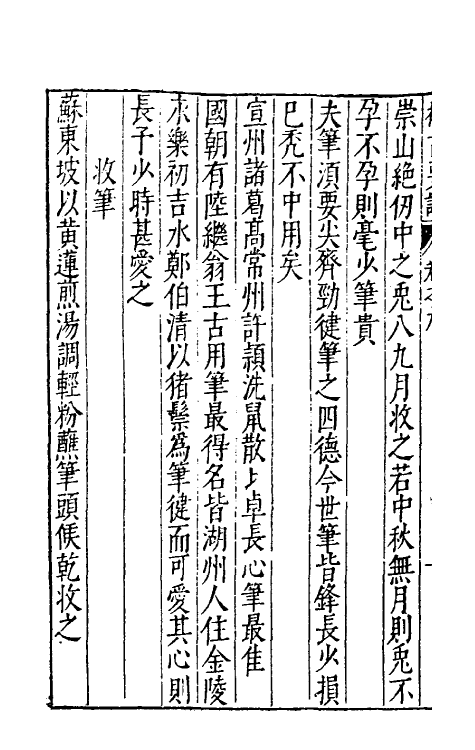 崇山絶仞中之兎八九月收之若中秋無月則兎不
孕不孕則毫少筆貴
夫筆須要尖齊勁健筆之四德今世筆皆鋒長少損
巳秃不中用矣
宣州諸葛髙常州許頴洗鼠散卓長心筆最佳
國朝有陸繼翁王古用筆最得名皆湖州人住金陵
永樂初吉水鄭伯清以猪鬃為筆健而可愛其心則
長子少時甚愛之
收筆
蘇東坡以黄蓮煎湯調輕粉蘸筆頭候乾收之